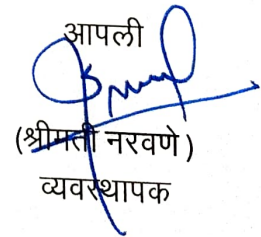 आपली
(श्रीमती नरवणे)
व्यवस्थापक